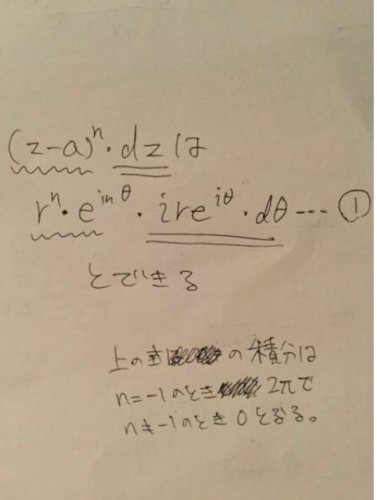 (z-a)ⁿ・dzは
rⁿ・e^{inθ}・ire^{iθ}・dθ…①
とできる
上の の積分は
n=-1のとき 2πで
n≠-1のとき0となる。